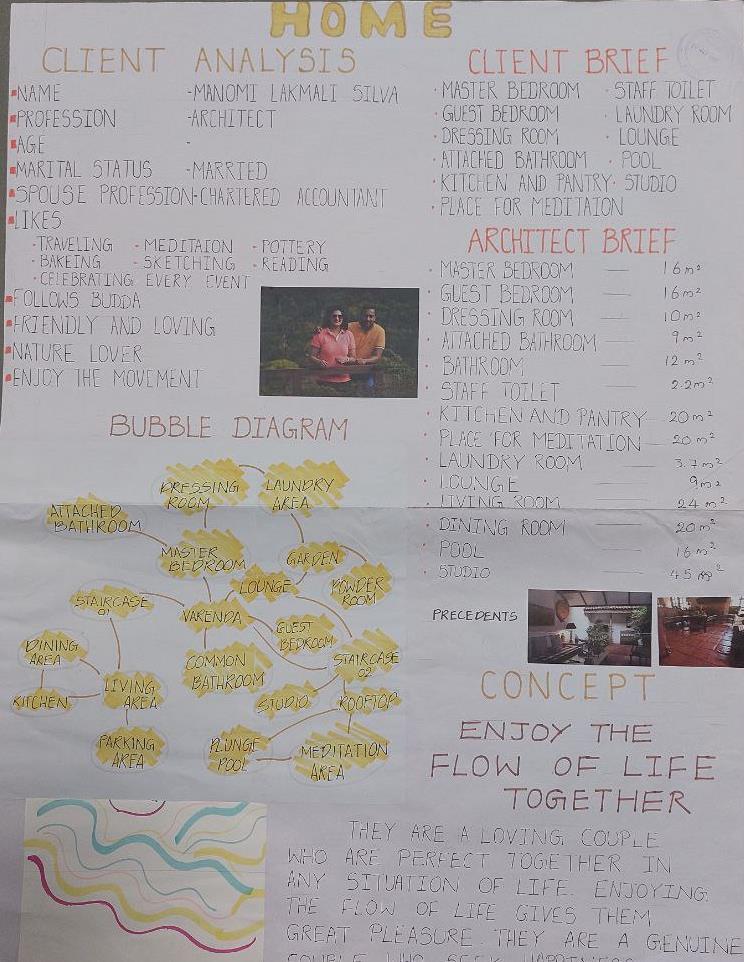 HOME
CLIENT ANALYSIS
NAME -MANOMI LAKMALI SILVA
PROFESSION -ARCHITECT
AGE -
MARITAL STATUS -MARRIED
SPOUSE PROFESSION-CHARTERED ACCOUNTANT
LIKES
-TRAVELING -MEDITAION -POTTERY
-BAKEING -SKETCHING -READING
-CELEBRATING EVERY EVENT
FOLLOWS BUDDA
FRIENDLY AND LOVING
NATURE LOVER
ENJOY THE MOVEMENT
BUBBLE DIAGRAM
DRESSING ROOM
LAUNDRY AREA
ATTACHED BATHROOM
MASTER BEDROOM
GARDEN
LOUNGE
POWDER ROOM
STAIRCASE 01
VARENDA
GUEST BEDROOM
DINING AREA
COMMON BATHROOM
STAIRCASE 02
KITCHEN
LIVING AREA
STUDIO
ROOFTOP
PARKING AREA
PLUNGE POOL
MEDITATION AREA
CLIENT BRIEF
MASTER BEDROOM STAFF TOILET
GUEST BEDROOM LAUNDRY ROOM
DRESSING ROOM LOUNGE
ATTACHED BATHROOM POOL
KITCHEN AND PANTRY STUDIO
PLACE FOR MEDITAION
ARCHITECT BRIEF
MASTER BEDROOM — 16m²
GUEST BEDROOM — 16m²
DRESSING ROOM — 10m²
ATTACHED BATHROOM — 9m²
BATHROOM — 12m²
STAFF TOILET — 2.2m²
KITCHEN AND PANTRY — 20m²
PLACE FOR MEDITATION — 20m²
LAUNDRY ROOM — 3.7m²
LOUNGE — 9m²
LIVING ROOM — 24m²
DINING ROOM — 20m²
POOL — 16m²
STUDIO — 45m²
PRECEDENTS
CONCEPT
ENJOY THE
FLOW OF LIFE
TOGETHER
THEY ARE A LOVING COUPLE
WHO ARE PERFECT TOGETHER IN
ANY SITUATION OF LIFE. ENJOYING
THE FLOW OF LIFE GIVES THEM
GREAT PLEASURE. THEY ARE A GENUINE
COUPLE WHO SEEK HAPPINESS